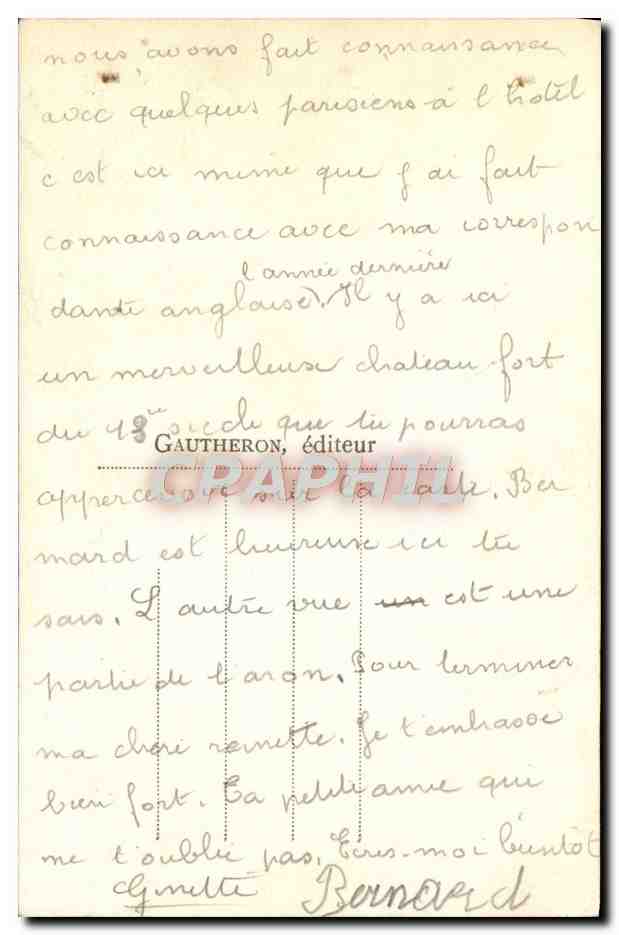 nous avons fait connaissance
avec quelques parisiens à l'hotel
c est ici même que j ai fait
connaissance avec ma correspon
l'année dernière
dante anglaise). Il y a ici
un merveilleux chateau-fort
du 13ème siecle que tu pourras
GAUTHERON, éditeur
CPAPHIL
appercevoir sur la carte. Ber
nard est heureux ici tu
sais. L'autre vue un est une
partie de l'aron. Pour terminer
ma chère rainette. Je t'embrasse
bien fort. Ta petite amie qui
ne t'oublie pas. Ecris-moi bientôt
Ginette Bernard